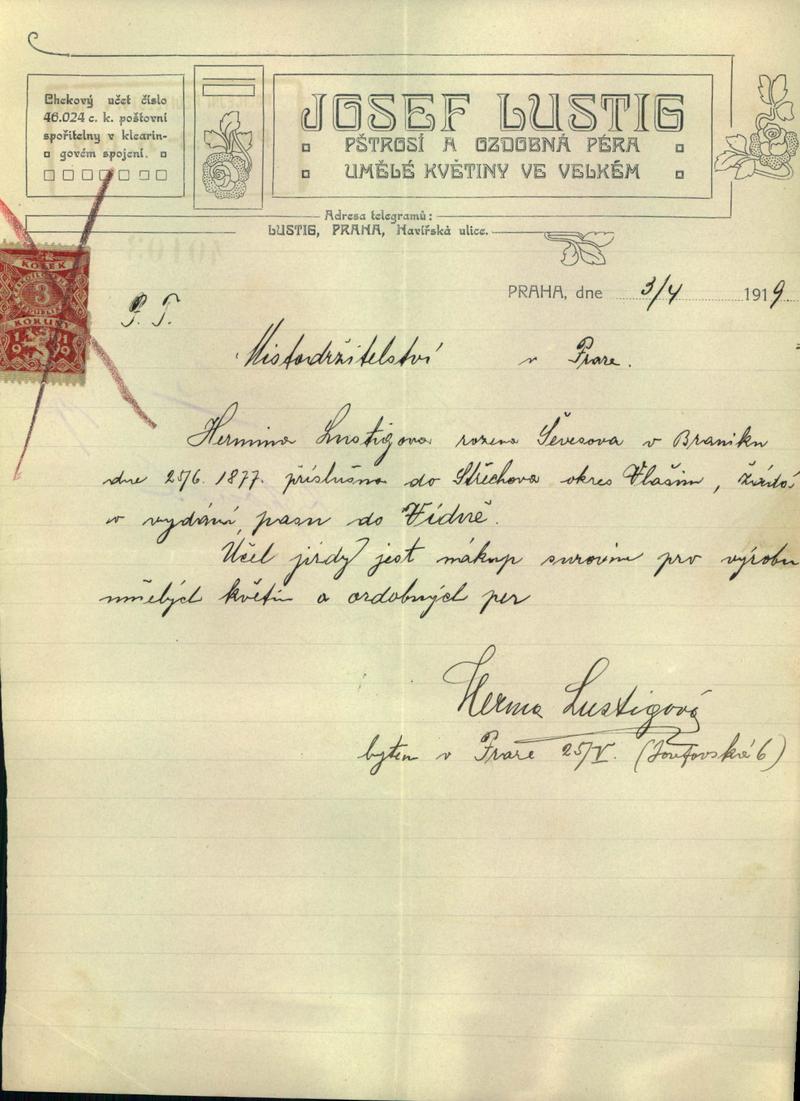 Chekový účet číslo
46.024 c. k. poštovní
spořitelny v klearin-
govém spojení.
JOSEF LUSTIG
PŠTROSÍ A OZDOBNÁ PÉRA
UMĚLÉ KVĚTINY VE VELKÉM
Adresa telegramů:
LUSTIG, PRAHA, Havířská ulice.
KOLEK
3
KORUNY
1919
PRAHA, dne 3/4 1919
P. T.
Mistodržitelství v Praze.
Hermina Lustigova rozena v Braniku
dne 25/6. 1877. příslušna do Střechova okres Vlašim, žádá
o vydání pasu do Vídně.
Účel jízdy jest nákup surovin pro výrobu
umělých květin a ozdobných per
Herma Lustigová
bytem v Praze 25/V. (Josefovská 6)